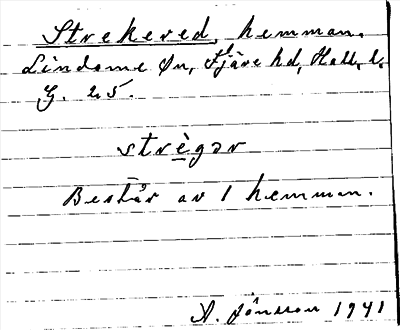 Strekered, hemman.
Lindome sn, Fjäre hd, Hall. l.
G. 25.
strègər
Består av 1 hemman.
A. Jönsson 1941